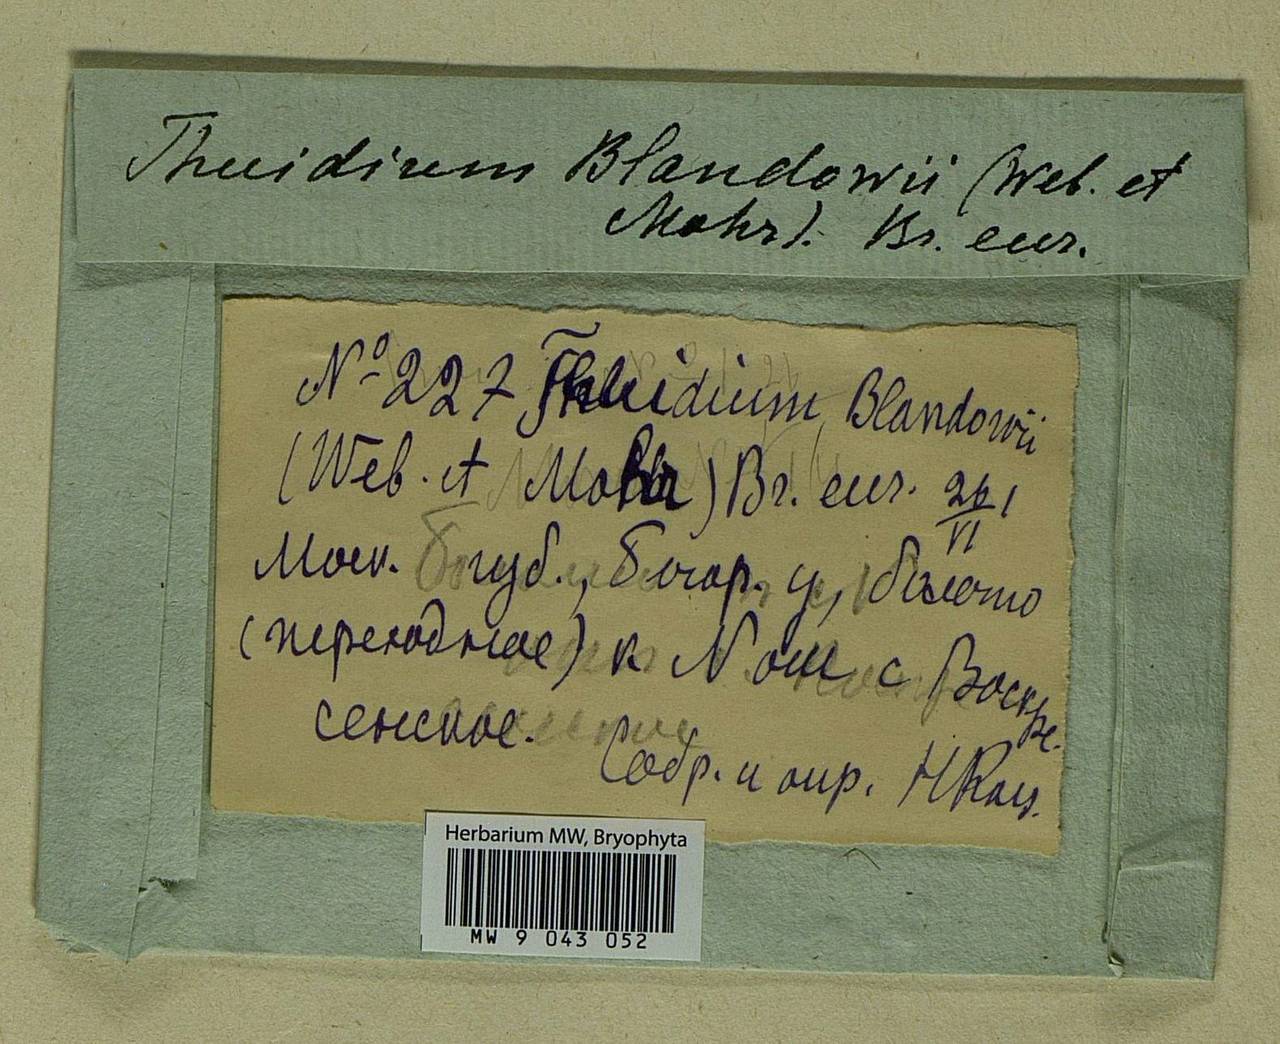 Thuidium Blandowii (Web. et
Mohr). Br. eur.
№ 227 Thuidium Blandowii
(Web. et Mohr) Br. eur. 26/VI
Моск. губ., Богор. у, болото
(переходное) к NОШ с Воскре-
сенское.
Собр. и опр. Н Кац.
Herbarium MW, Bryophyta
MW 9 043 052